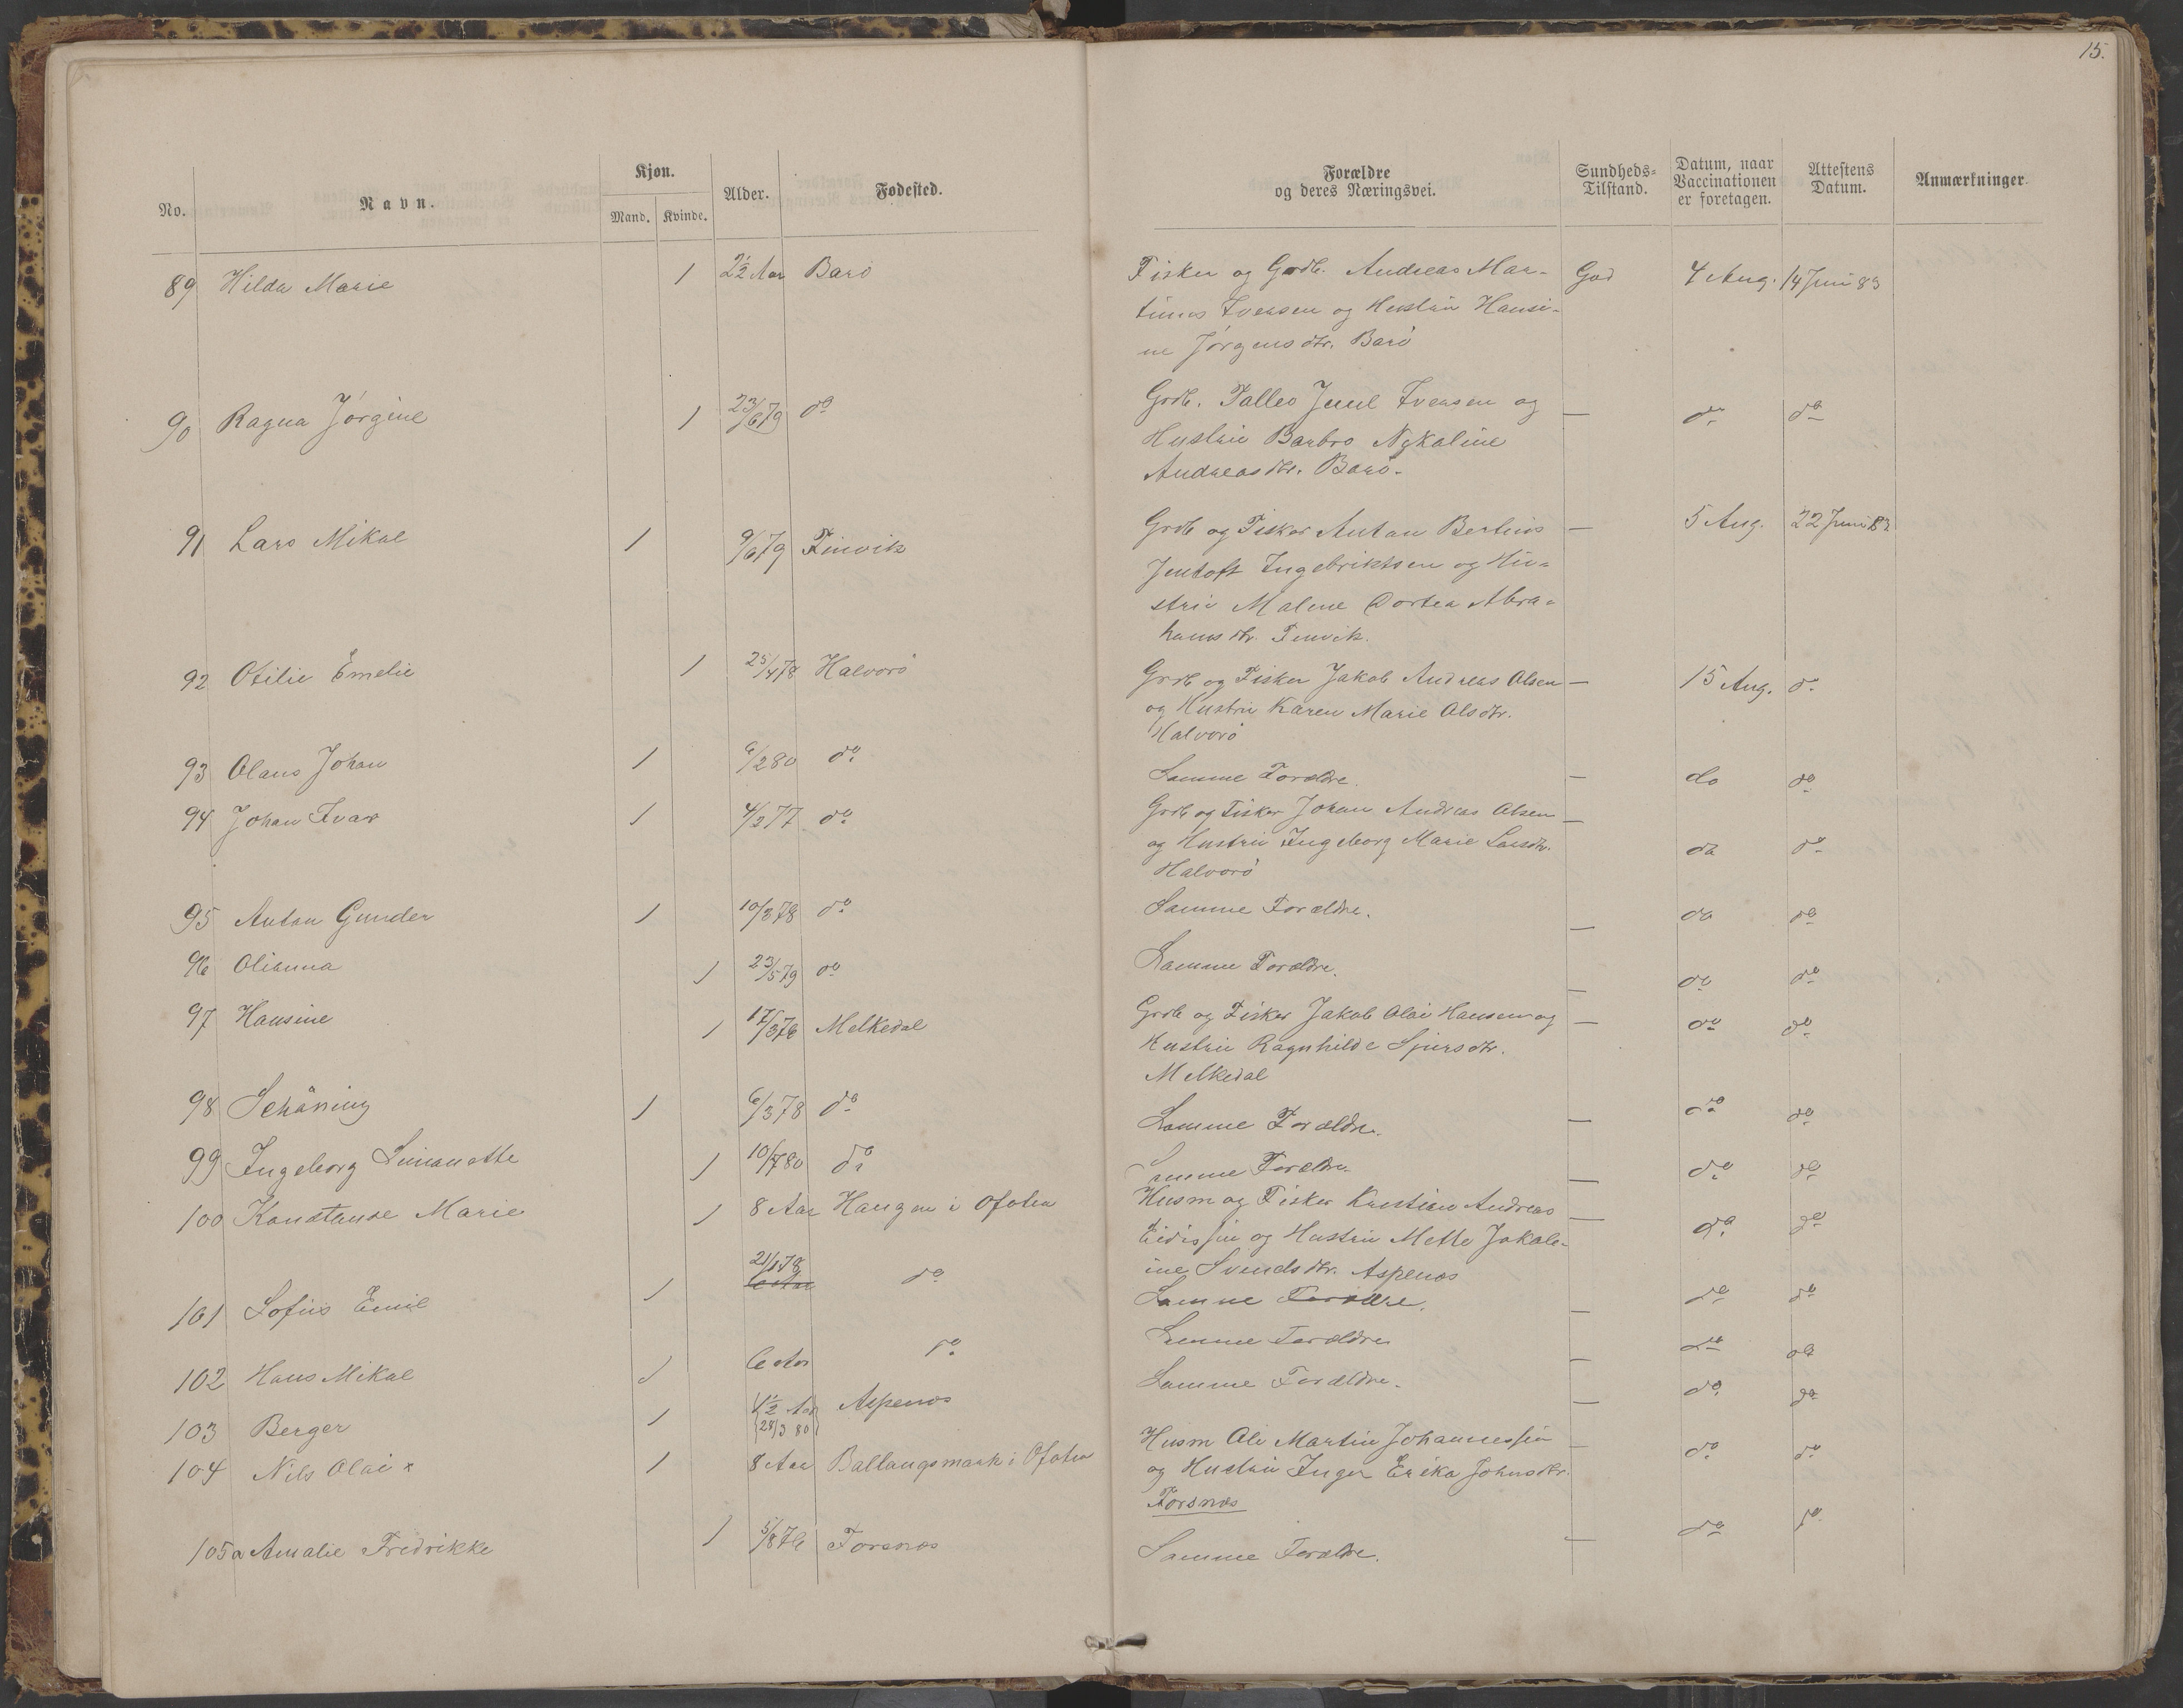 15.
No.
Navn.
Kjøn.
Mand.
Kvinde.
Alder.
Fødested.
Forældre
og deres Næringsvei.
Sundheds-
Tilstand.
Datum, naar
Vaccinationen
er foretagen.
Attestens
Datum.
Anmærkninger.
89 Hilda Marie 1 2½ Aar Barø
Fisker og Grdb. Andreas Mar-
tinus Iversen og Hustru Hansi-
ne Jørgensdtr. Barø
God 4 Aug. 14 Juni 83
90 Ragna Jørgine 1 23/6 79 do
Grdb. Juul Iversen og
Hustru Barbro Nykaline
Andreasdtr. Barø.
— do do
91 Lars Mikal 1 9/6 79 Finvik
Grdb og Fisker Anton Bertius
Jentoft Ingebriktsen og Hu-
stru Malene Dortea Abra-
hamsdtr. Finvik.
— 5 Aug. 22 Juni 83
92 Otilie Emelie 1 25/4 78 Halvorø
Grdb og Fisker Jakob Andreas Olsen
og Hustru Karen Marie Olsdtr.
Halvorø
— 15 Aug. do
93 Olaus Johan 1 6/2 80 do
Samme Forældre.
— do do
94 Johan Ivar 1 4/2 77 do
Grdb og Fisker Johan Andreas Olsen
og Hustru Ingeborg Marie Larsdtr.
Halvorø
— do do
95 Anton Gunder 1 10/3 78 do
Samme Forældre.
— do do
96 Olianna 1 23/5 79 do
Samme Forældre.
— do do
97 Hansine 1 17/3 76 Melkedal
Grdb og Fisker Jakob Olai Hansen og
Hustru Ragnhilde Sjursdtr.
Melkedal
— do do
98 Schåning 1 6/3 78 do
Samme Forældre.
— do do
99 Ingeborg Simanette 1 10/7 80 do
Samme Forældre.
— do do
100 Konstanse Marie 1 8 Aar Haugen i Ofoten
Husm og Fisker Kristian Andreas
Eidissen og Hustru Mette Jakob-
ine Svendsdtr. Aspenes
— do do
101 Sofus Emil 1 21/1 78 6 Aar do
Samme Forældre.
— do do
102 Hans Mikal 1 6 Aar do
Samme Forældre
— do do
103 Berger 1 1½ Aar Aspenes
28/3 80
Samme Forældre.
— do do
104 Nils Olai x 1 8 Aar Ballangsmark i Ofoten
Husm Ole Martin Johannessen
og Hustru Inger Erika Johnsdtr.
Forsnes
— do do
105a Amalie Fredrikke 1 5/8 76 Forsnes
Samme Forældre.
— do do